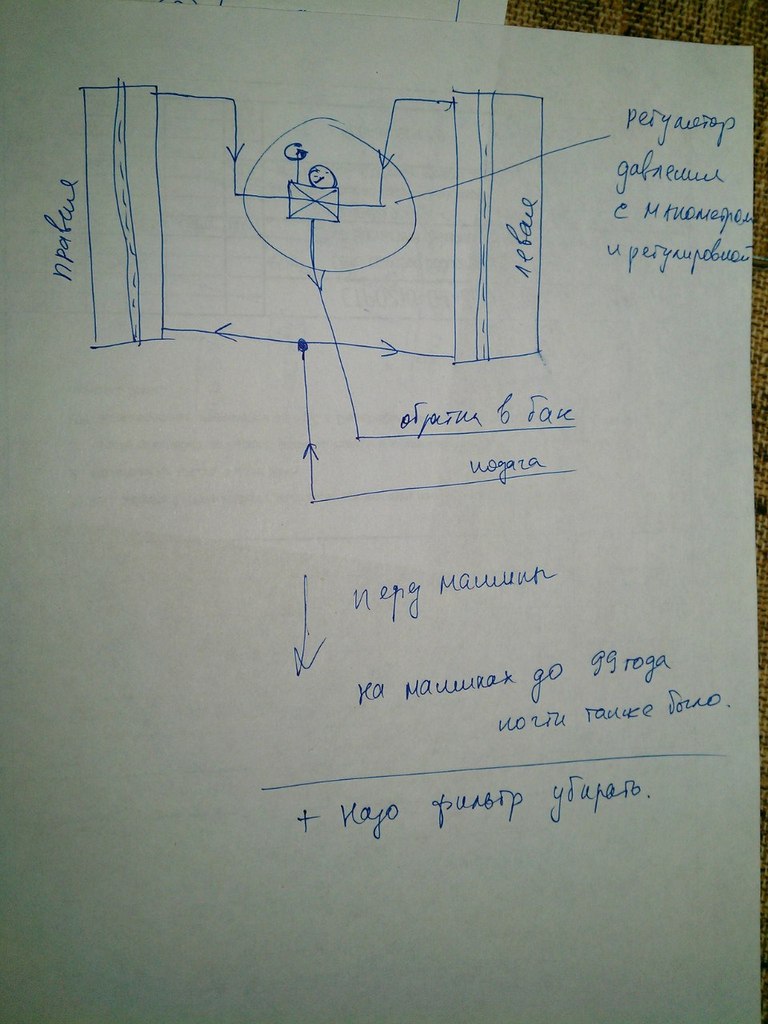 регулятор
давления
с мнометром
и регулировкой
правая
левая
обратка в бак
подача
перед машины
на машинах до 99 года
почти также было.
+ надо фильтр убирать.